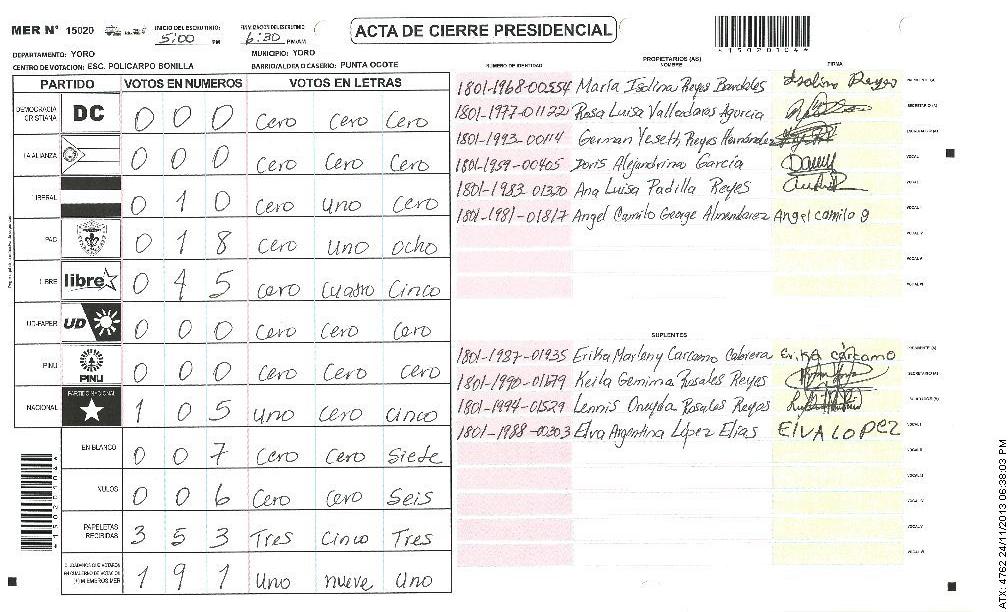 MER N° 15020 INICIO DEL ESCRUTINIO: 5:00 PM FINALIZACION DEL ESCRUTINIO: 6:30 PM/AM ACTA DE CIERRE PRESIDENCIAL
DEPARTAMENTO: YORO MUNICIPIO: YORO
CENTRO DE VOTACION: ESC. POLICARPO BONILLA BARRIO/ALDEA O CASERIO: PUNTA OCOTE
PARTIDO VOTOS EN NUMEROS VOTOS EN LETRAS
DEMOCRACIA CRISTIANA DC 0 0 0 Cero Cero Cero
LA ALIANZA 0 0 0 Cero Cero Cero
LIBERAL 0 1 0 Cero uno Cero
PAC 0 1 8 Cero uno ocho
LIBRE libre 0 4 5 Cero Cuatro Cinco
UD-FAPER UD 0 0 0 Cero Cero Cero
PINU PINU 0 0 0 Cero Cero Cero
NACIONAL PARTIDO NACIONAL 1 0 5 uno Cero Cinco
EN BLANCO 0 0 7 Cero Cero Siete
NULOS 0 0 6 Cero Cero Seis
PAPELETAS RECIBIDAS 3 5 3 Tres Cinco Tres
CIUDADANOS QUE VOTARON EN CUADERNO DE VOTACION (+) MIEMBROS MER 1 9 1 Uno nueve Uno
PROPIETARIOS (AS)
NUMERO DE IDENTIDAD NOMBRE FIRMA
1801-1968-00554 María Isolina Reyes Bardales Isolina Reyes
1801-1977-01122 Rosa Luisa Valladares Agurcia
1801-1993-00114 German Yeseth Reyes Hernández
1801-1959-00405 Doris Alejandrina García
1801-1983-01320 Ana Luisa Padilla Reyes
1801-1981-01817 Angel Camilo George Almendarez Angel camilo g
SUPLENTES
1801-1987-01935 Erika Marleny Carcamo Cabrera Erika cárcamo
1801-1990-01679 Keila Gemima Rosales Reyes
1801-1994-01529 Lennis Oneyda Rosales Reyes
1801-1988-00303 Elva Argentina López Elias ElVA LOPEZ
ATX: 4762 24/11/2013 06:38:03 PM